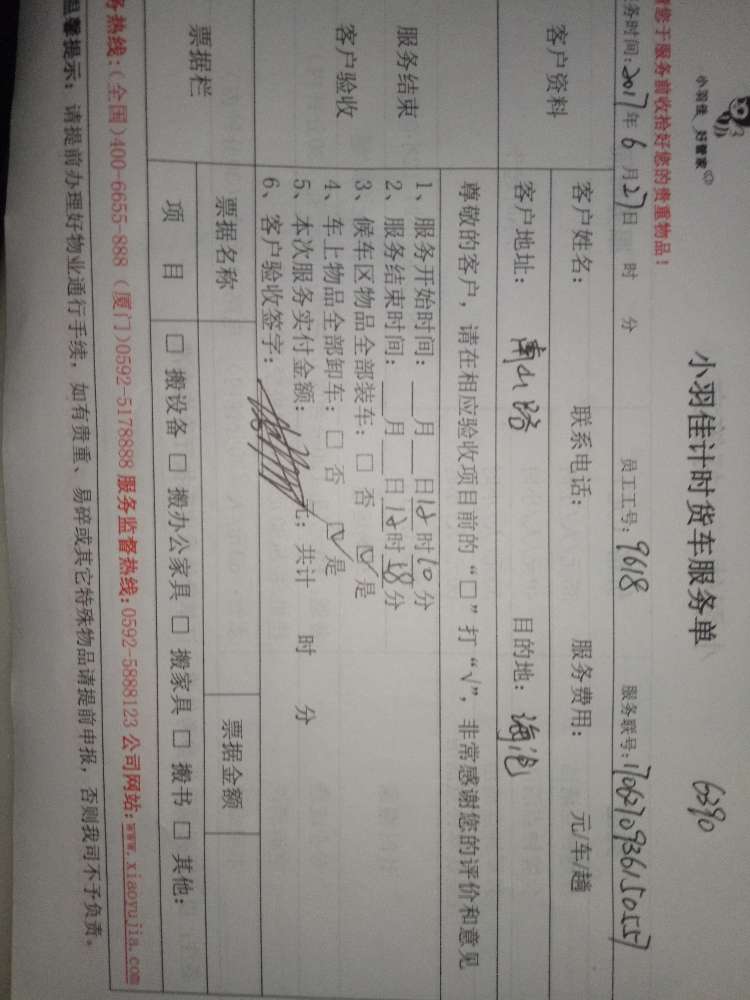 小羽佳 好管家
小羽佳计时货车服务单
6390
您于服务前收拾好您的贵重物品！
务时间：2017年6月27日 时 分 员工工号：9618 服务联号：170627093615055
客户资料
客户姓名： 联系电话： 服务费用： 元/车/趟
客户地址：南山路 目的地：海沧
服务结束
客户验收
尊敬的客户，请在相应验收项目前的“□”打“√”，非常感谢您的评价和意见
1、服务开始时间：___月___日12时10分
2、服务结束时间：___月___日12时58分
3、候车区物品全部装车：□ 否 ☑ 是
4、车上物品全部卸车：□ 否 ☑ 是
5、本次服务实付金额： 元；共计 时 分
6、客户验收签字：
票据栏
票据名称 票据金额
项 目 □ 搬设备 □ 搬办公家具 □ 搬家具 □ 搬书 □ 其他：
务热线：（全国）400-6655-888（厦门）0592-5178888 服务监督热线：0592-5888123 公司网站：www.xiaoyujia.com
温馨提示：请提前办理好物业通行手续，如有贵重、易碎或其它特殊物品请提前申报，否则我司不予负责。